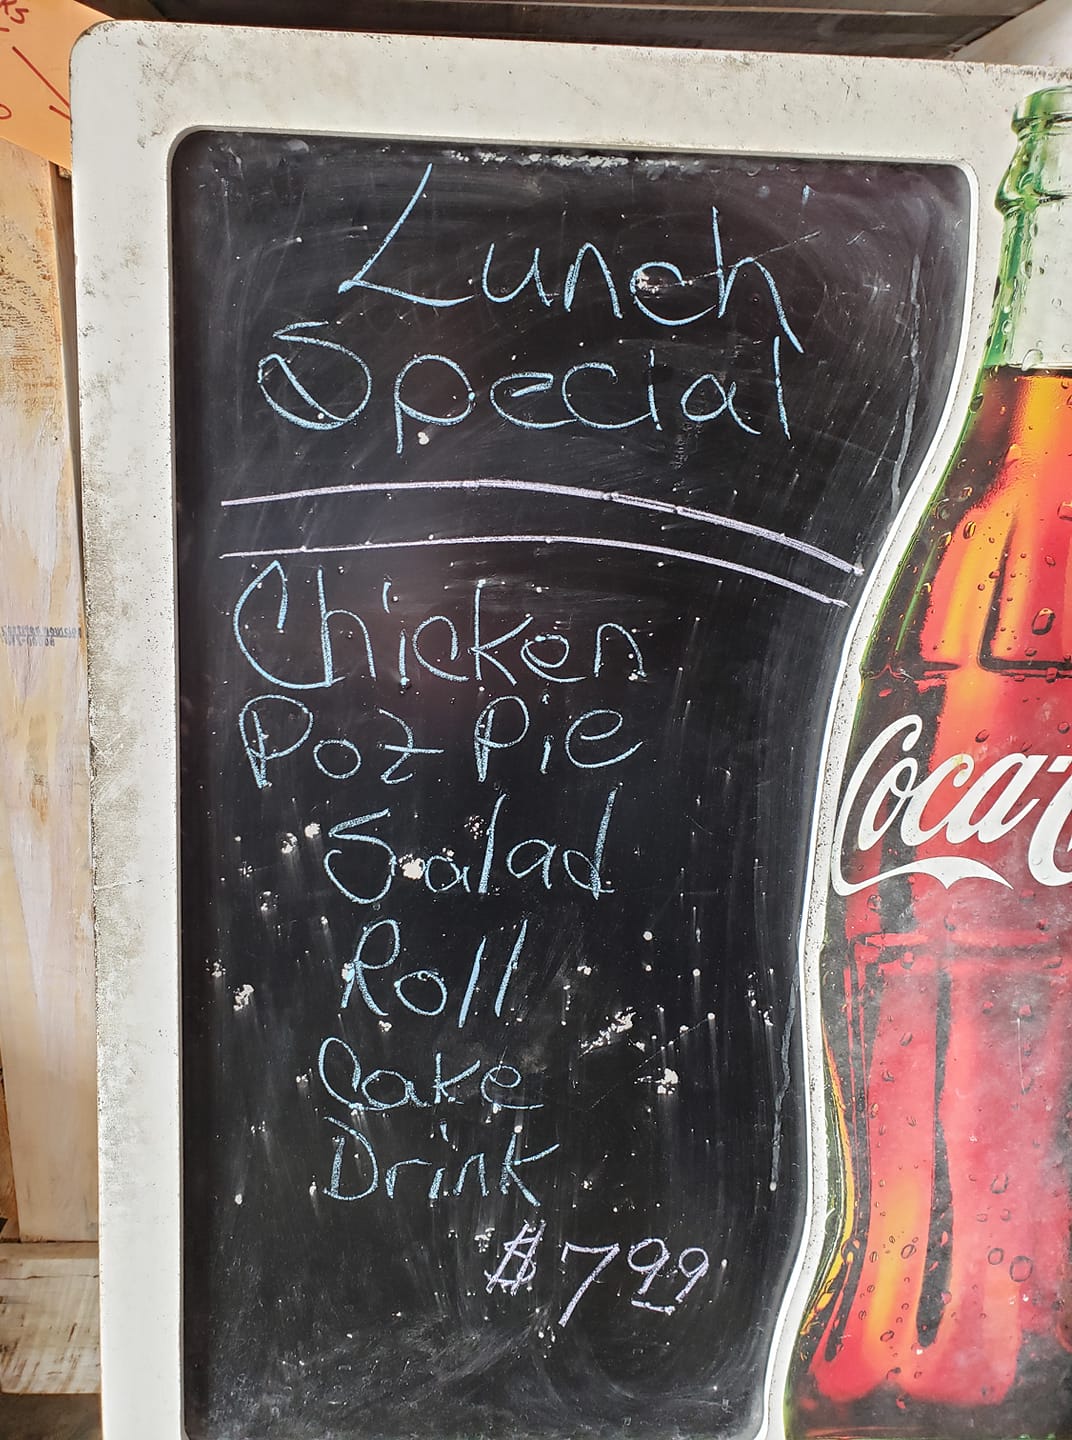 Lunch
Special
Chicken
Pot Pie
Salad
Roll
Cake
Drink
$799
Coca-